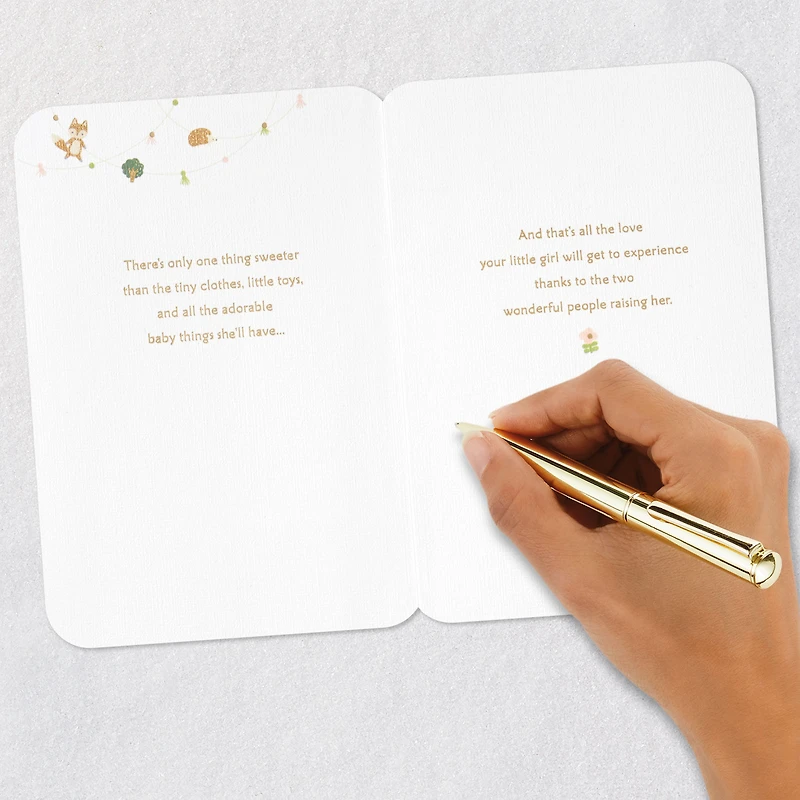 There's only one thing sweeter
than the tiny clothes, little toys,
and all the adorable
baby things she'll have...
And that's all the love
your little girl will get to experience
thanks to the two
wonderful people raising her.